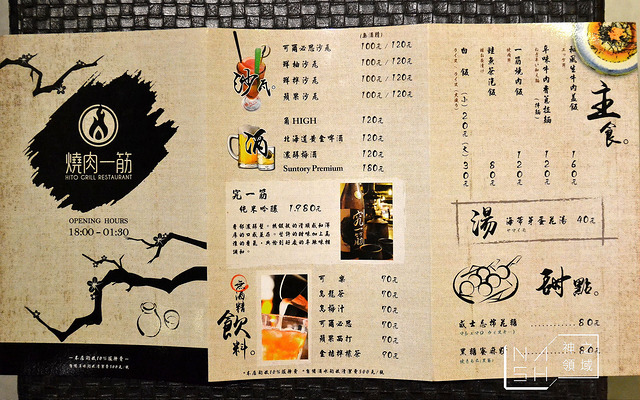 燒肉一筋
HITO GRILL RESTAURANT
OPENING HOURS
18:00 - 01:30
－本店酌收10%服務費－
沙瓦。
可爾必思沙瓦 100元 / 120元
鮮柚沙瓦 100元 / 120元
鮮檸沙瓦 100元 / 120元
蘋果沙瓦 100元 / 120元
酒。
角HIGH 120元
北海道黃金啤酒 120元
濃醇梅酒 120元
Suntory Premium 180元
究一筋
純米吟釀 1,980元
無酒精
飲料。
可樂 70元
烏龍茶 70元
烏梅汁 70元
可爾必思 70元
蘋果西打 70元
金桔檸檬茶 90元
主食。
和風生牛肉蓋飯 160元
辛味味肉香蔥拉麵 120元
一筋燒肉飯 120元
鮭魚茶泡飯 80元
白飯 (小)20元 (大)30元
湯
海帶芽蛋花湯 40元
甜點。
威士忌棉花糖 80元
黑糖蜜麻糬 80元
NASH
神之領域